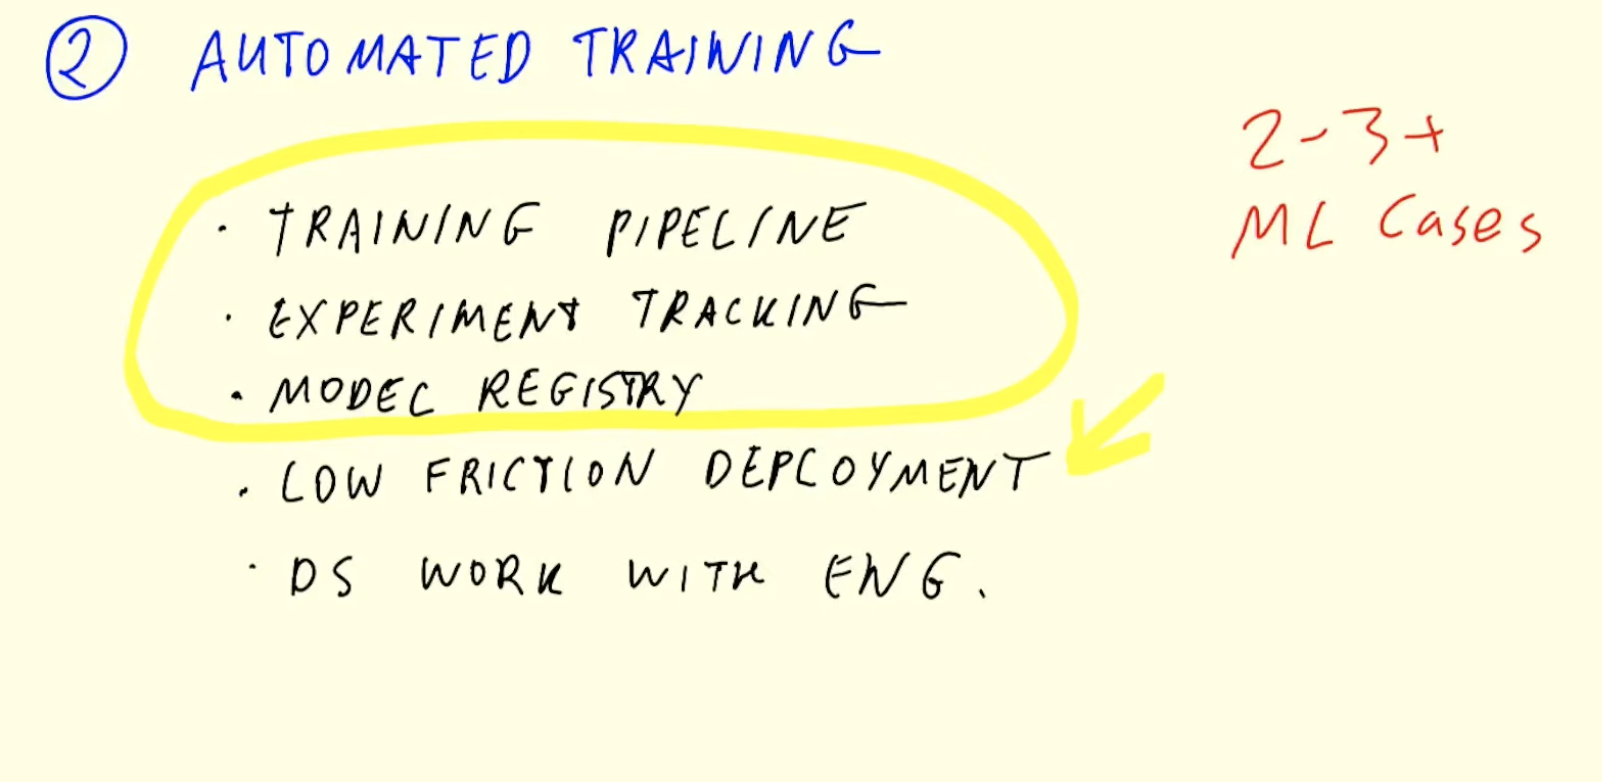 ② AUTOMATED TRAINING
2-3+
ML Cases
· TRAINING PIPELINE
· EXPERIMENT TRACKING
· MODEL REGISTRY
· LOW FRICTION DEPLOYMENT
· DS WORK WITH ENG.